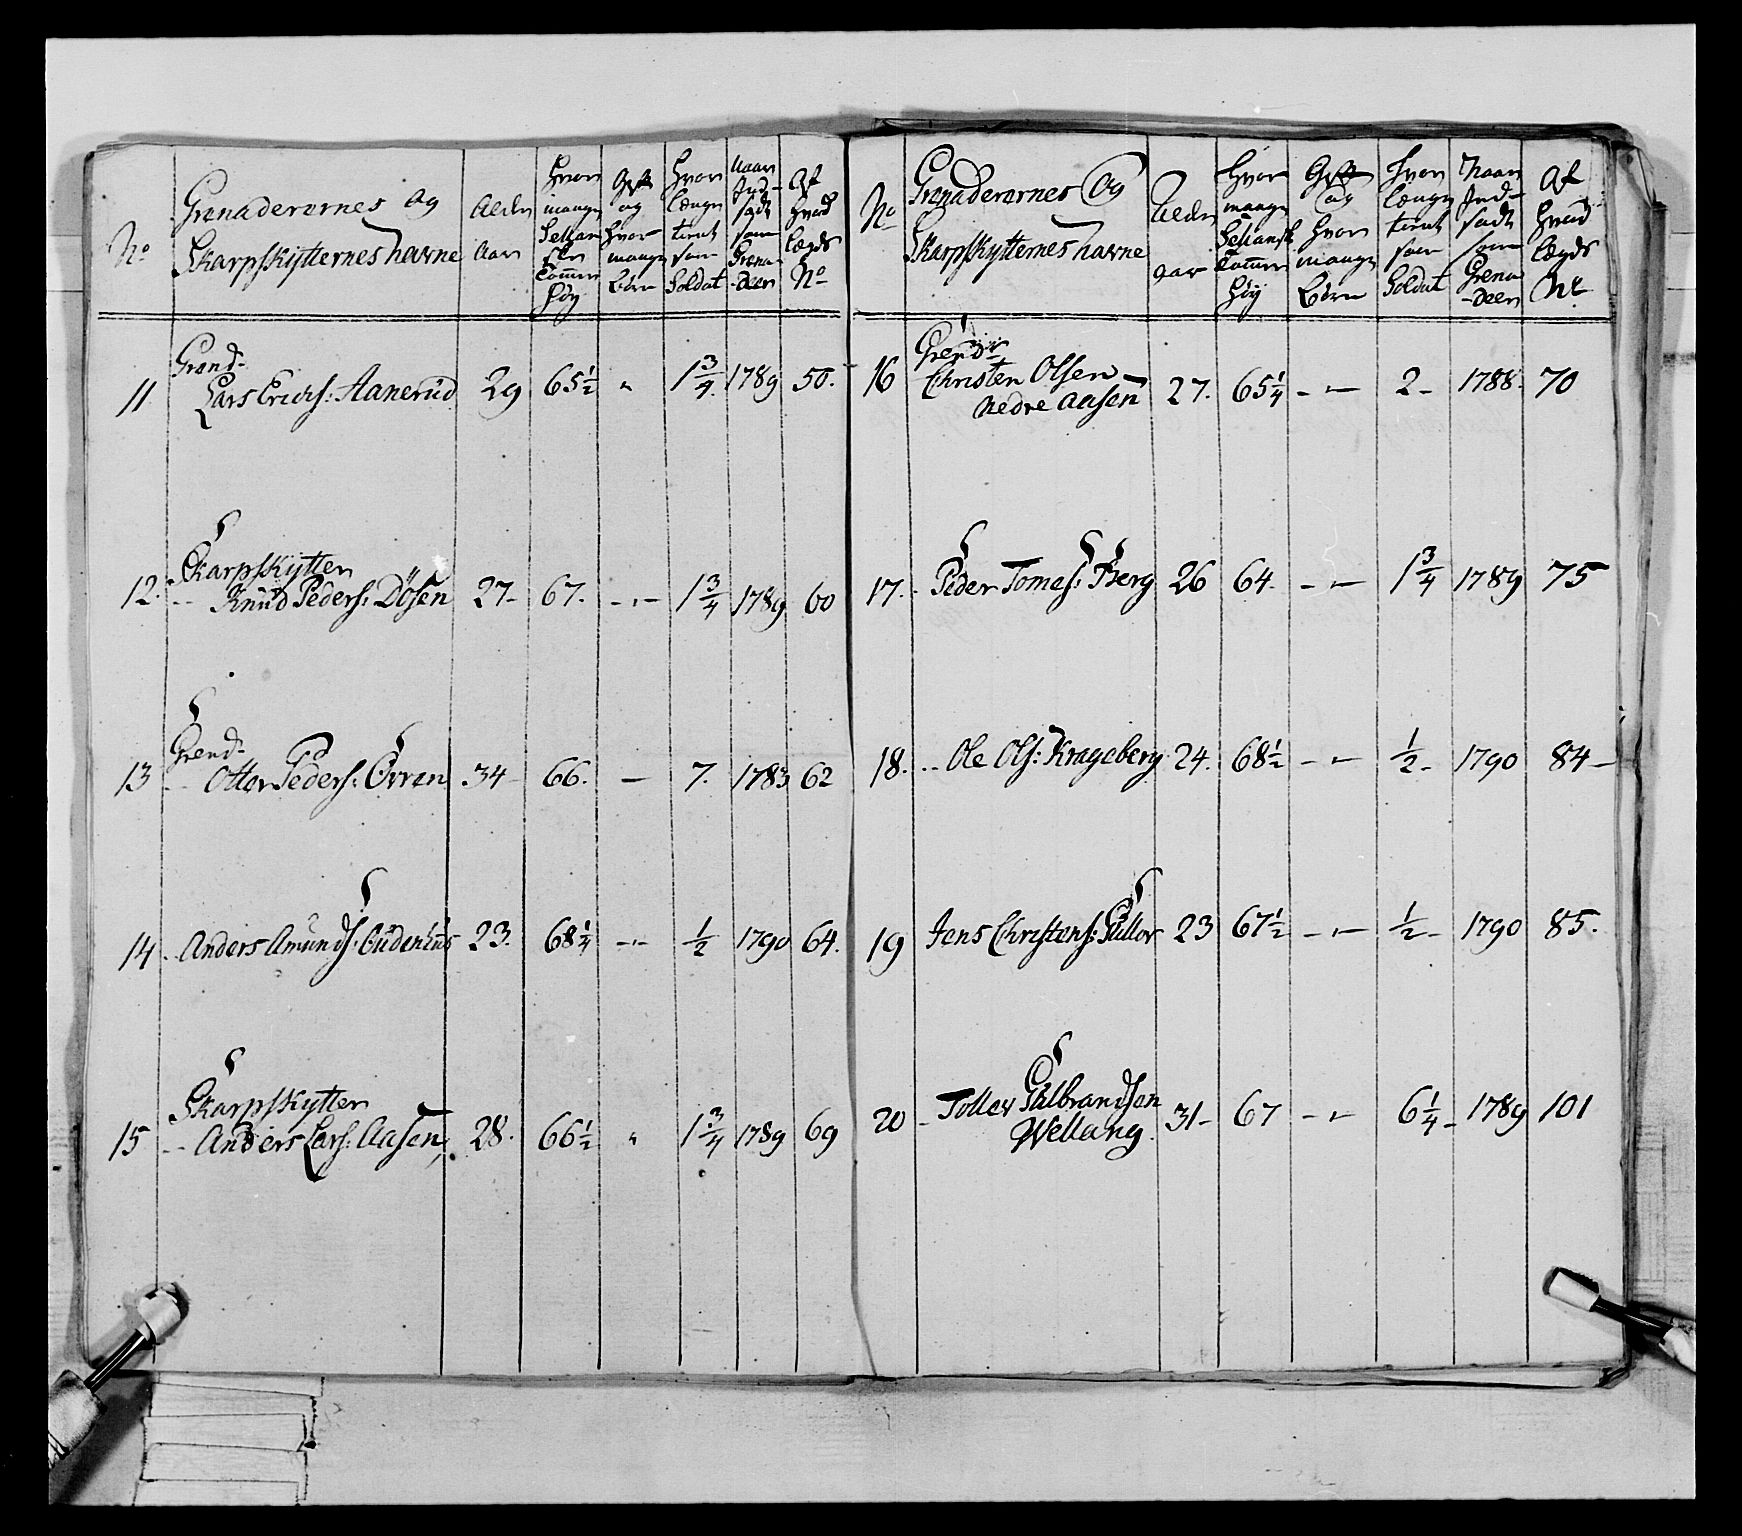 No
Grenaderernes og
Skarpskytternes navne
Alder
Aar
Hvor
mange
Tommer
høy
Gift
og
hvor
mange
Børn
Hvor
længe
tient
som
Soldat
Naar
Ind-
sadt
som
Grena-
deer
Af
hvad
Lægds
No
11
Grend-
Lars Erichs: Aanerüd
29
65½
"
1¾
1789
50.
12.
Skarpskytter
Knüd Peders: Dösen
27-
67.
-"-
1¾
1789
60
13
Grend-
Otter Peders: Örren
34-
66.
-
7.
1783
62
14
Anders Amunds:
23.
68¼
-"-
½
1790
64.
15
Skarpskytter
Anders Lars: Aasen,
28.
66½
"
1¾
1789
69
No
Grenaderernes Og
Skarpskytternes navne
Alder
aar
Hvor
mange
Sellansk
Tommer
høy
Gift
og
hvor
mange
Børn
Hvor
længe
tient
som
Soldat
Naar
Ind-
sadt
som
Grena-
deer
Af
hvad
Lægds
Nr
16
Grendr
Christen Olsen
nedre Aasen
27.
65¼
-"-
2-
1788.
70
17.
Peder Tomes: Berg
26
64.
-"-
1¾
1789
75
18.
Ole Ols: Krageberg
24.
68½
-"-
½-
1790
84-
19
Jens Christens: Püllor
23
67½
-"-
½-
1790
85.
20
Tollev Gülbrandsen
Wellang.
31-
67
-"-
6¼-
1789
101